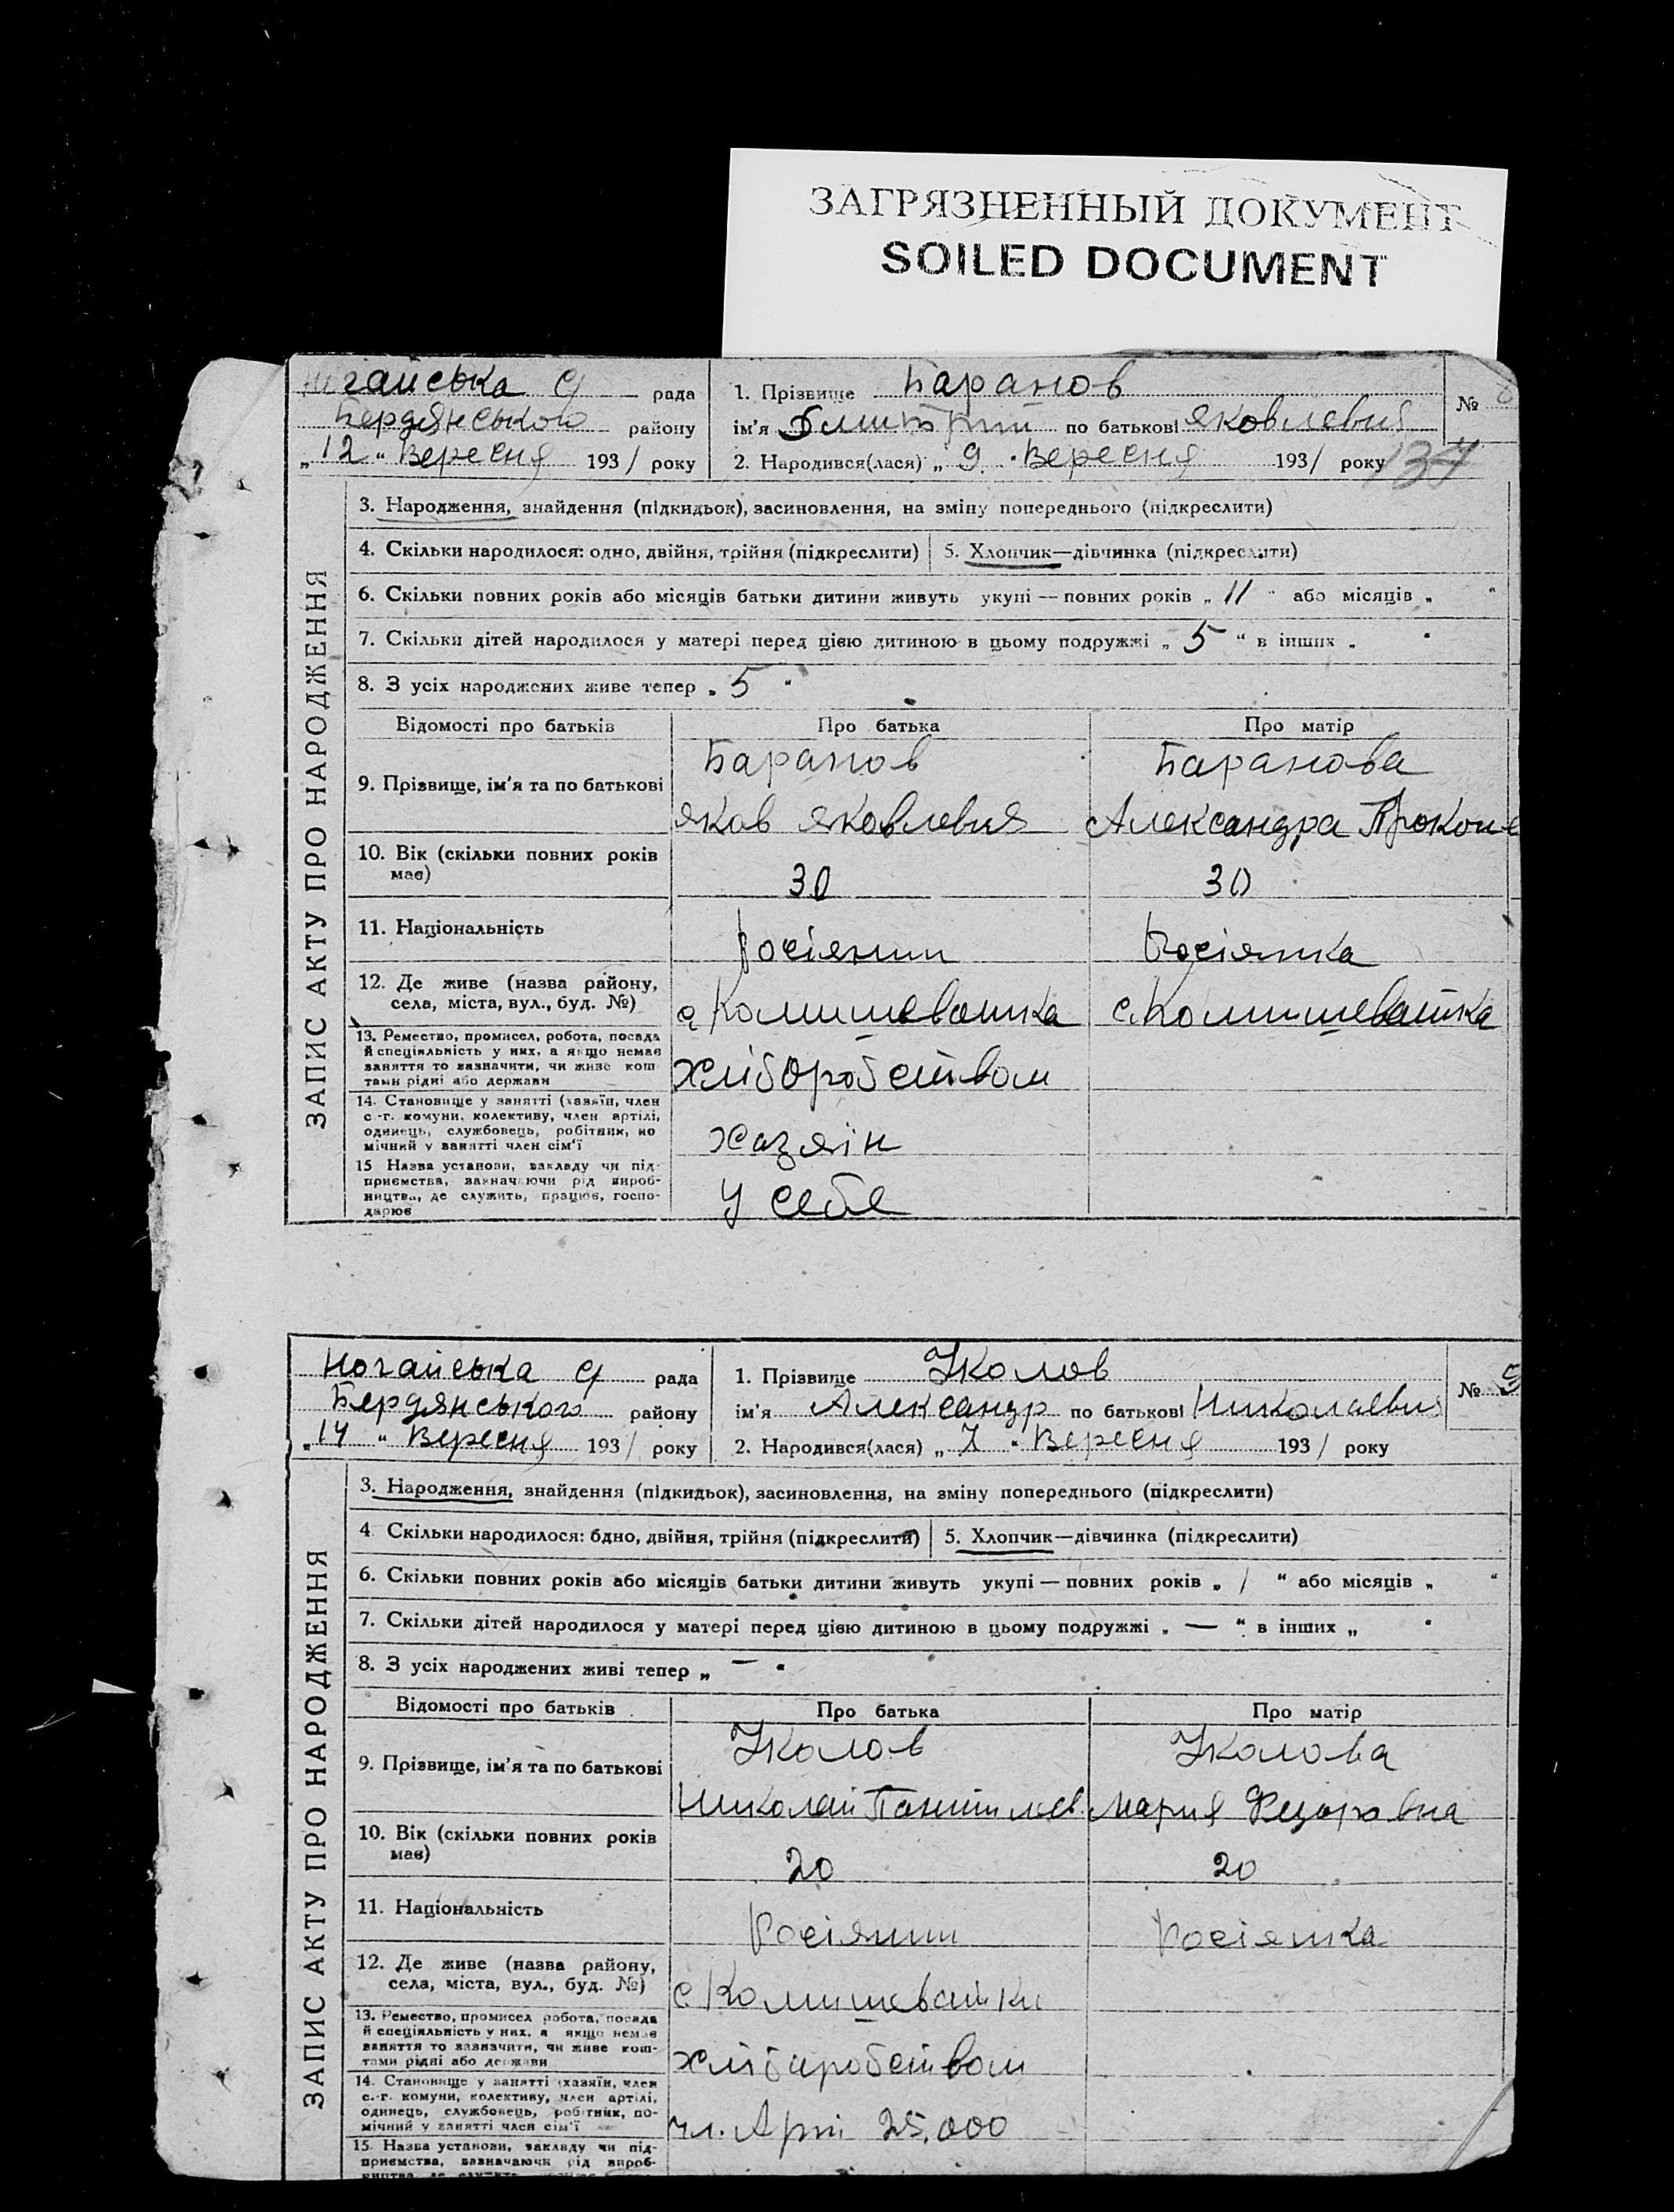 ЗАГРЯЗНЕННЫЙ ДОКУМЕНТ
SOILED DOCUMENT
гайська С рада
Бердянського району
„12" Вересня 1931 року
1. Прізвище Баранов
ім'я Дмитрий по батькові Яковлевич
2. Народився(лася) „9" Вересня 1931 року
№
137
ЗАПИС АКТУ ПРО НАРОДЖЕННЯ
3. Народження, знайдення (підкидьок), засиновлення, на зміну попереднього (підкреслити)
4. Скільки народилося: одно, двійня, трійня (підкреслити) 5. Хлопчик—дівчинка (підкреслити)
6. Скільки повних років або місяців батьки дитини живуть укупі — повних років „11" або місяців „ "
7. Скільки дітей народилося у матері перед цією дитиною в цьому подружжі „5" в інших „ "
8. З усіх народжених живе тепер „5"
Відомості про батьків Про батька Про матір
9. Прізвище, ім'я та по батькові
Баранов Баранова
Яков Яковлевич Александра Прокоп
10. Вік (скільки повних років має) 30 30
11. Національність Росіянин Росіянка
12. Де живе (назва району,
села, міста, вул., буд. №) с Комишеватка с. Комишеватка
13. Ремество, промисел, робота, посада
й спеціяльність у них, а якщо немає
заняття то зазначити, чи живе кош
тами рідні або держави
хліборобством
14. Становище у занятті (хазяїн, член
с.-г. комуни, колективу, член артілі,
одинець, службовець, робітник, по
мічний у занятті член сім'ї
Хазяін
15 Назва установи, закладу чи під-
приємства, зазначаючи рід вироб-
ництва, де служить, працює, госпо-
дарює
У себе
Ногайська С рада
Бердянського району
„14" Вересня 1931 року
1. Прізвище Уколов
ім'я Александр по батькові Николаевич
2. Народився(лася) „7" Вересня 1931 року
№ 9
ЗАПИС АКТУ ПРО НАРОДЖЕННЯ
3. Народження, знайдення (підкидьок), засиновлення, на зміну попереднього (підкреслити)
4 Скільки народилося: одно, двійня, трійня (підкреслити) 5. Хлопчик—дівчинка (підкреслити)
6. Скільки повних років або місяців батьки дитини живуть укупі — повних років „1" або місяців „ "
7. Скільки дітей народилося у матері перед цією дитиною в цьому подружжі „—" в інших „ "
8. З усіх народжених живі тепер „—"
Відомості про батьків Про батька Про матір
9. Прізвище, ім'я та по батькові
Уколов Уколова
Николай Мария Федоровна
10. Вік (скільки повних років має) 20 20
11. Національність Росіянин Росіянка
12. Де живе (назва району,
села, міста, вул., буд. №) с Комишеватки
13. Ремество, промисел робота, посада
й спеціяльність у них, а якщо немає
заняття то зазначити, чи живе кош-
тами рідні або держави
хліборобством
14. Становище у занятті (хазяїн, член
с.-г. комуни, колективу, член артілі,
одинець, службовець, робітник, по-
мічний у занятті член сім'ї
чл. Арті 25.000
15. Назва установи, закладу чи під-
приємства, зазначаючи рід вироб-